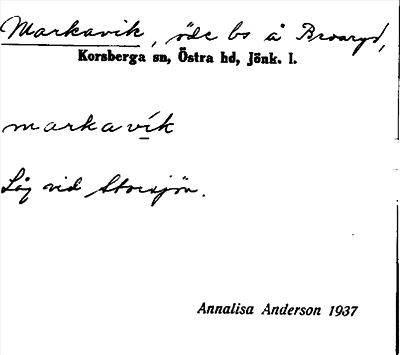 Markavik, öde bs å Broaryd,
Korsberga sn, Östra hd, Jönk. l.
markavík
Låg vid Storsjön.
Annalisa Anderson 1937